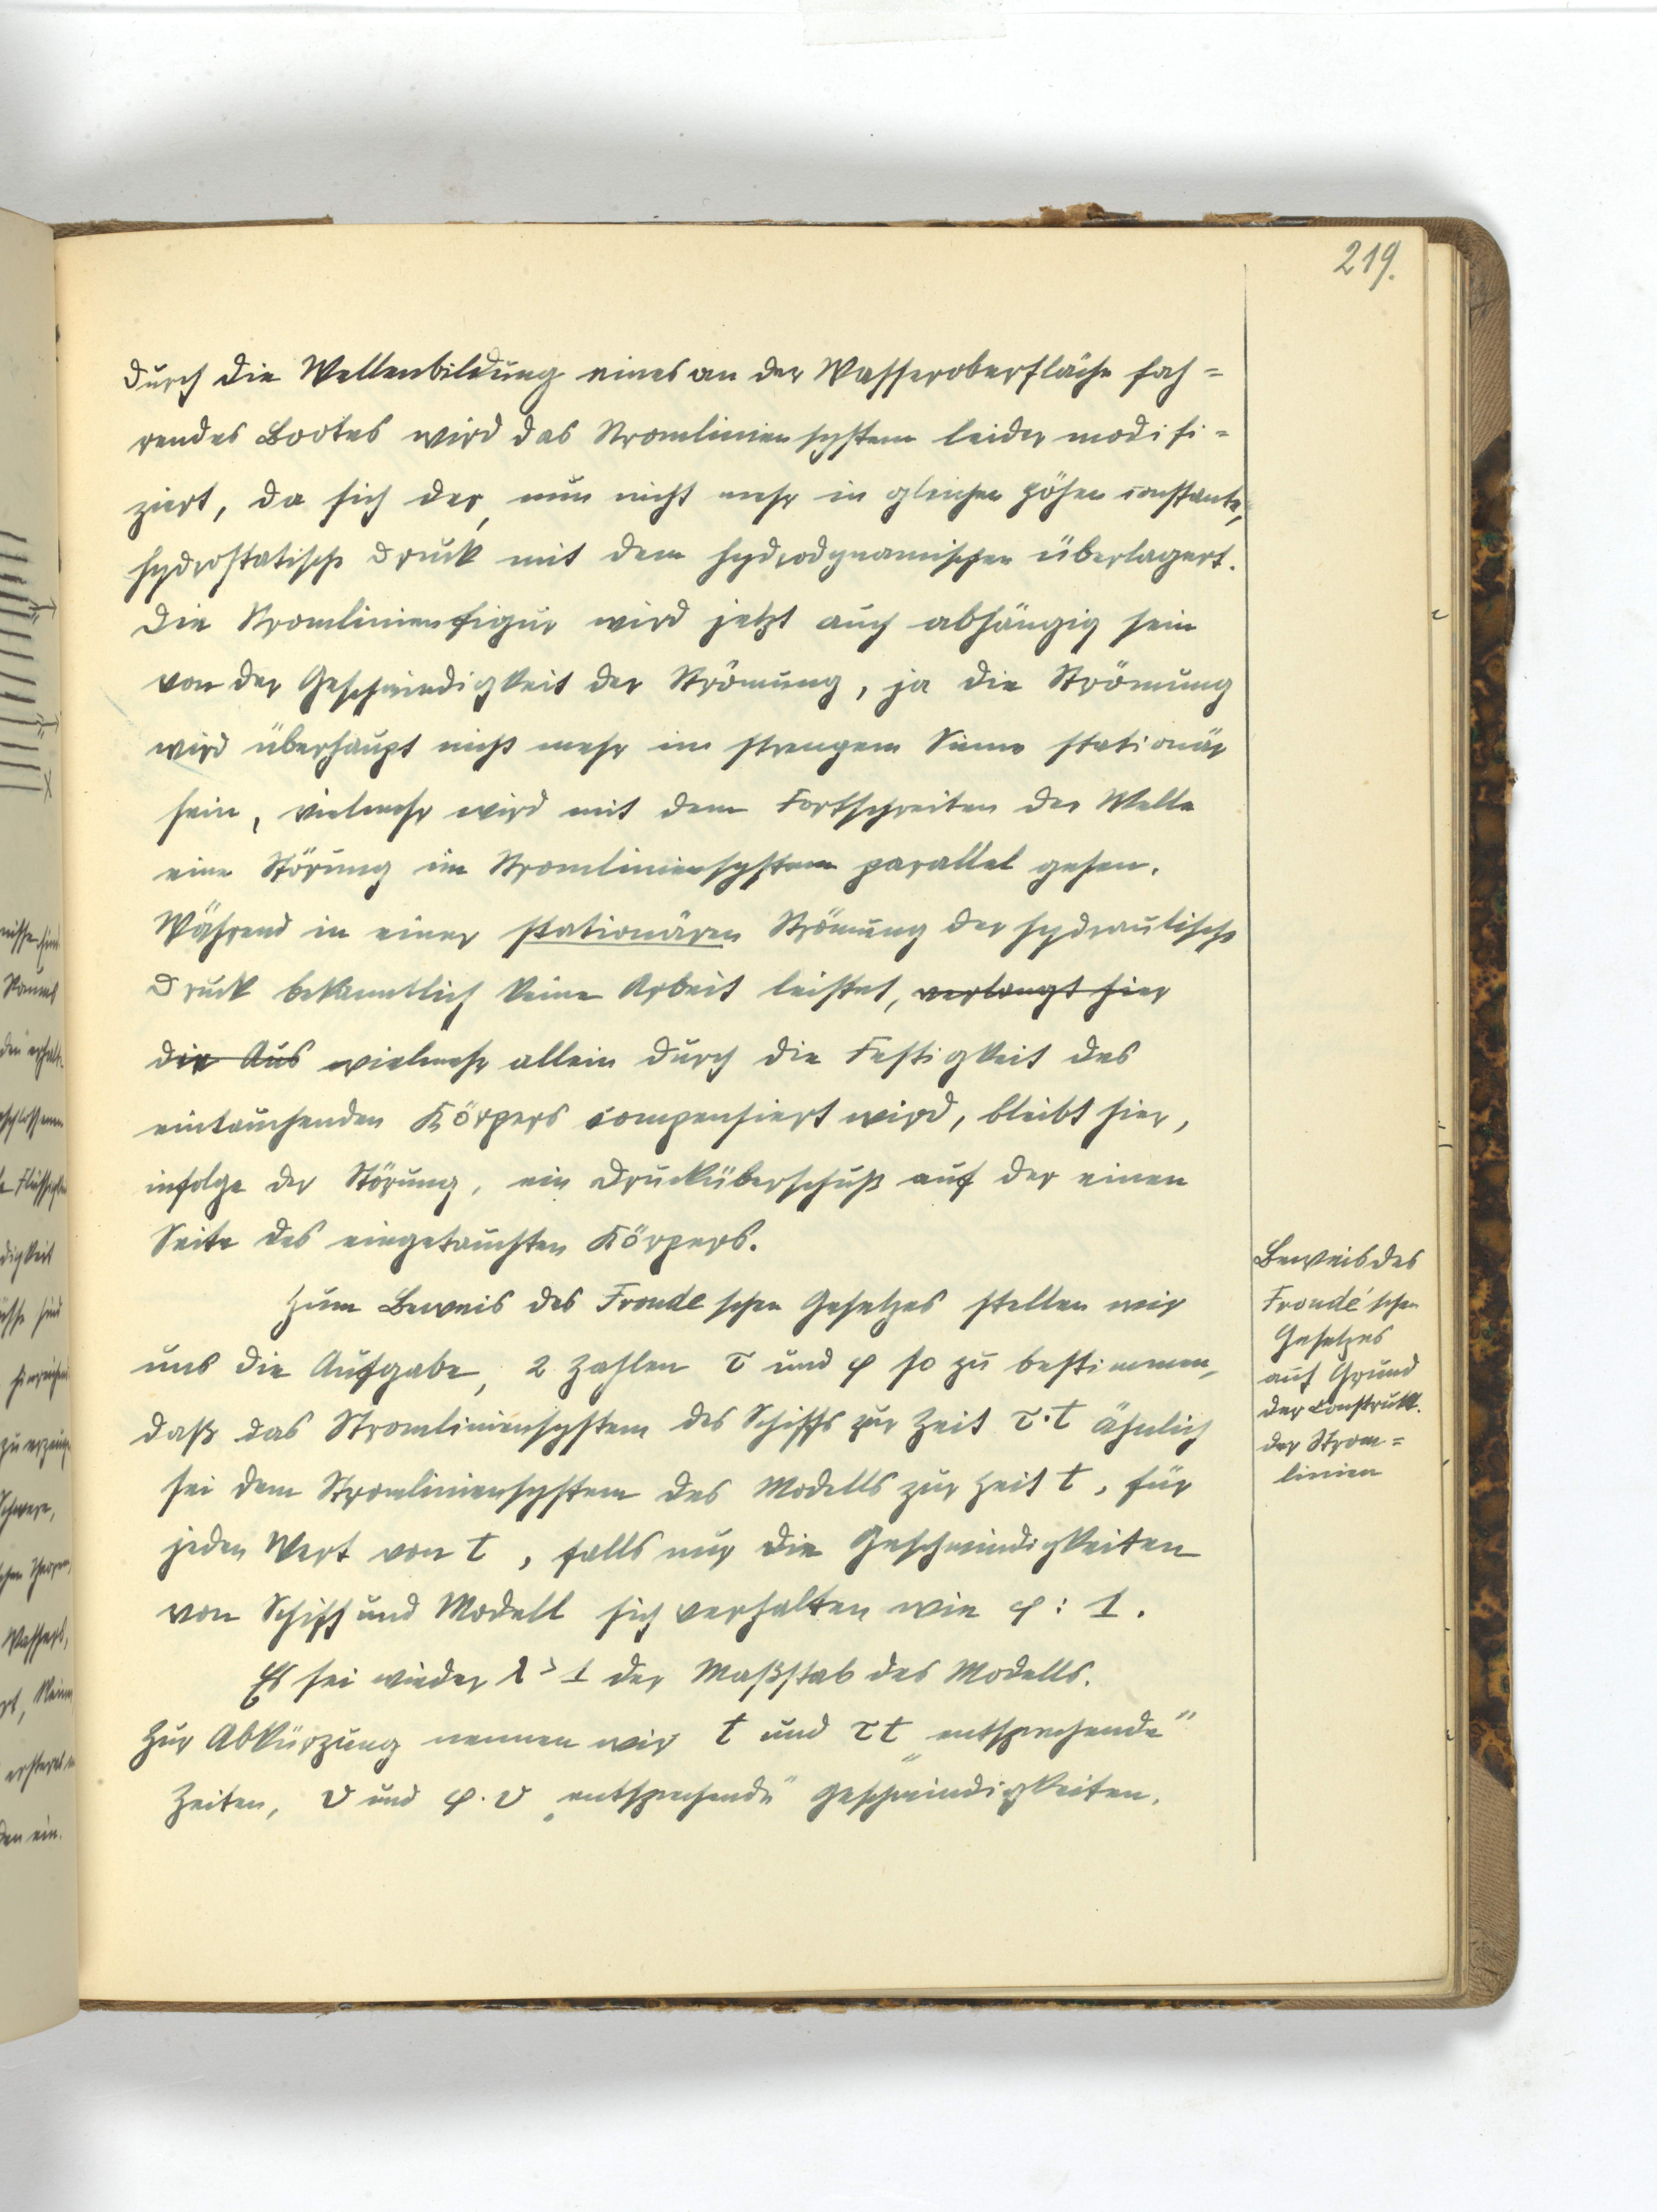 219.
durch die Wellenbildung eines an der Wasseroberfläche fah=
rendes Bootes wird das Stromliniensystem leider modifi=
ziert, da sich der, nun nicht mehr in gleichen Höhen constante,
hydrostatische Druck mit dem hydrodynamischen überlagert.
Die Stromlinienfigur wird jetzt auch abhängig sein
von der Geschwindigkeit der Strömung, ja die Strömung
wird überhaupt nicht mehr im strengem Sinne stationär
sein, vielmehr wird mit dem Fortschreiten der Welle
eine Störung im Stromliniensystem parallel gehen.
Während in einer stationären Strömung der hydraulische
Druck bekanntlich keine Arbeit leistet, verlangt hier
die Aus vielmehr allein durch die Festigkeit des
eintauchenden Körpers compensiert wird, bleibt hier,
infolge der Störung, ein Drucküberschuß auf der einen
Seite des eingetauchten Körpers.
Zum Beweis des Froude schen Gesetzes stellen wir
uns die Aufgabe, 2 Zahlen τ und φ so zu bestimmen,
daß das Stromliniensystem des Schiffs zur Zeit τ·t ähnlich
sei dem Stromliniensystem des Modells zur Zeit t, für
jeden Wert von t, falls nur die Geschwindigkeiten
von Schiff und Modell sich verhalten wie φ : 1.
Es sei wieder λ > 1 der Maßstab des Modells.
Zur Abkürzung nennen wir t und τt „entsprechende"
Zeiten, v und φ·v „entsprechende" Geschwindigkeiten.
Beweis des
Froude'schen
Gesetzes
auf Grund
der Construkt.
der Strom=
linien